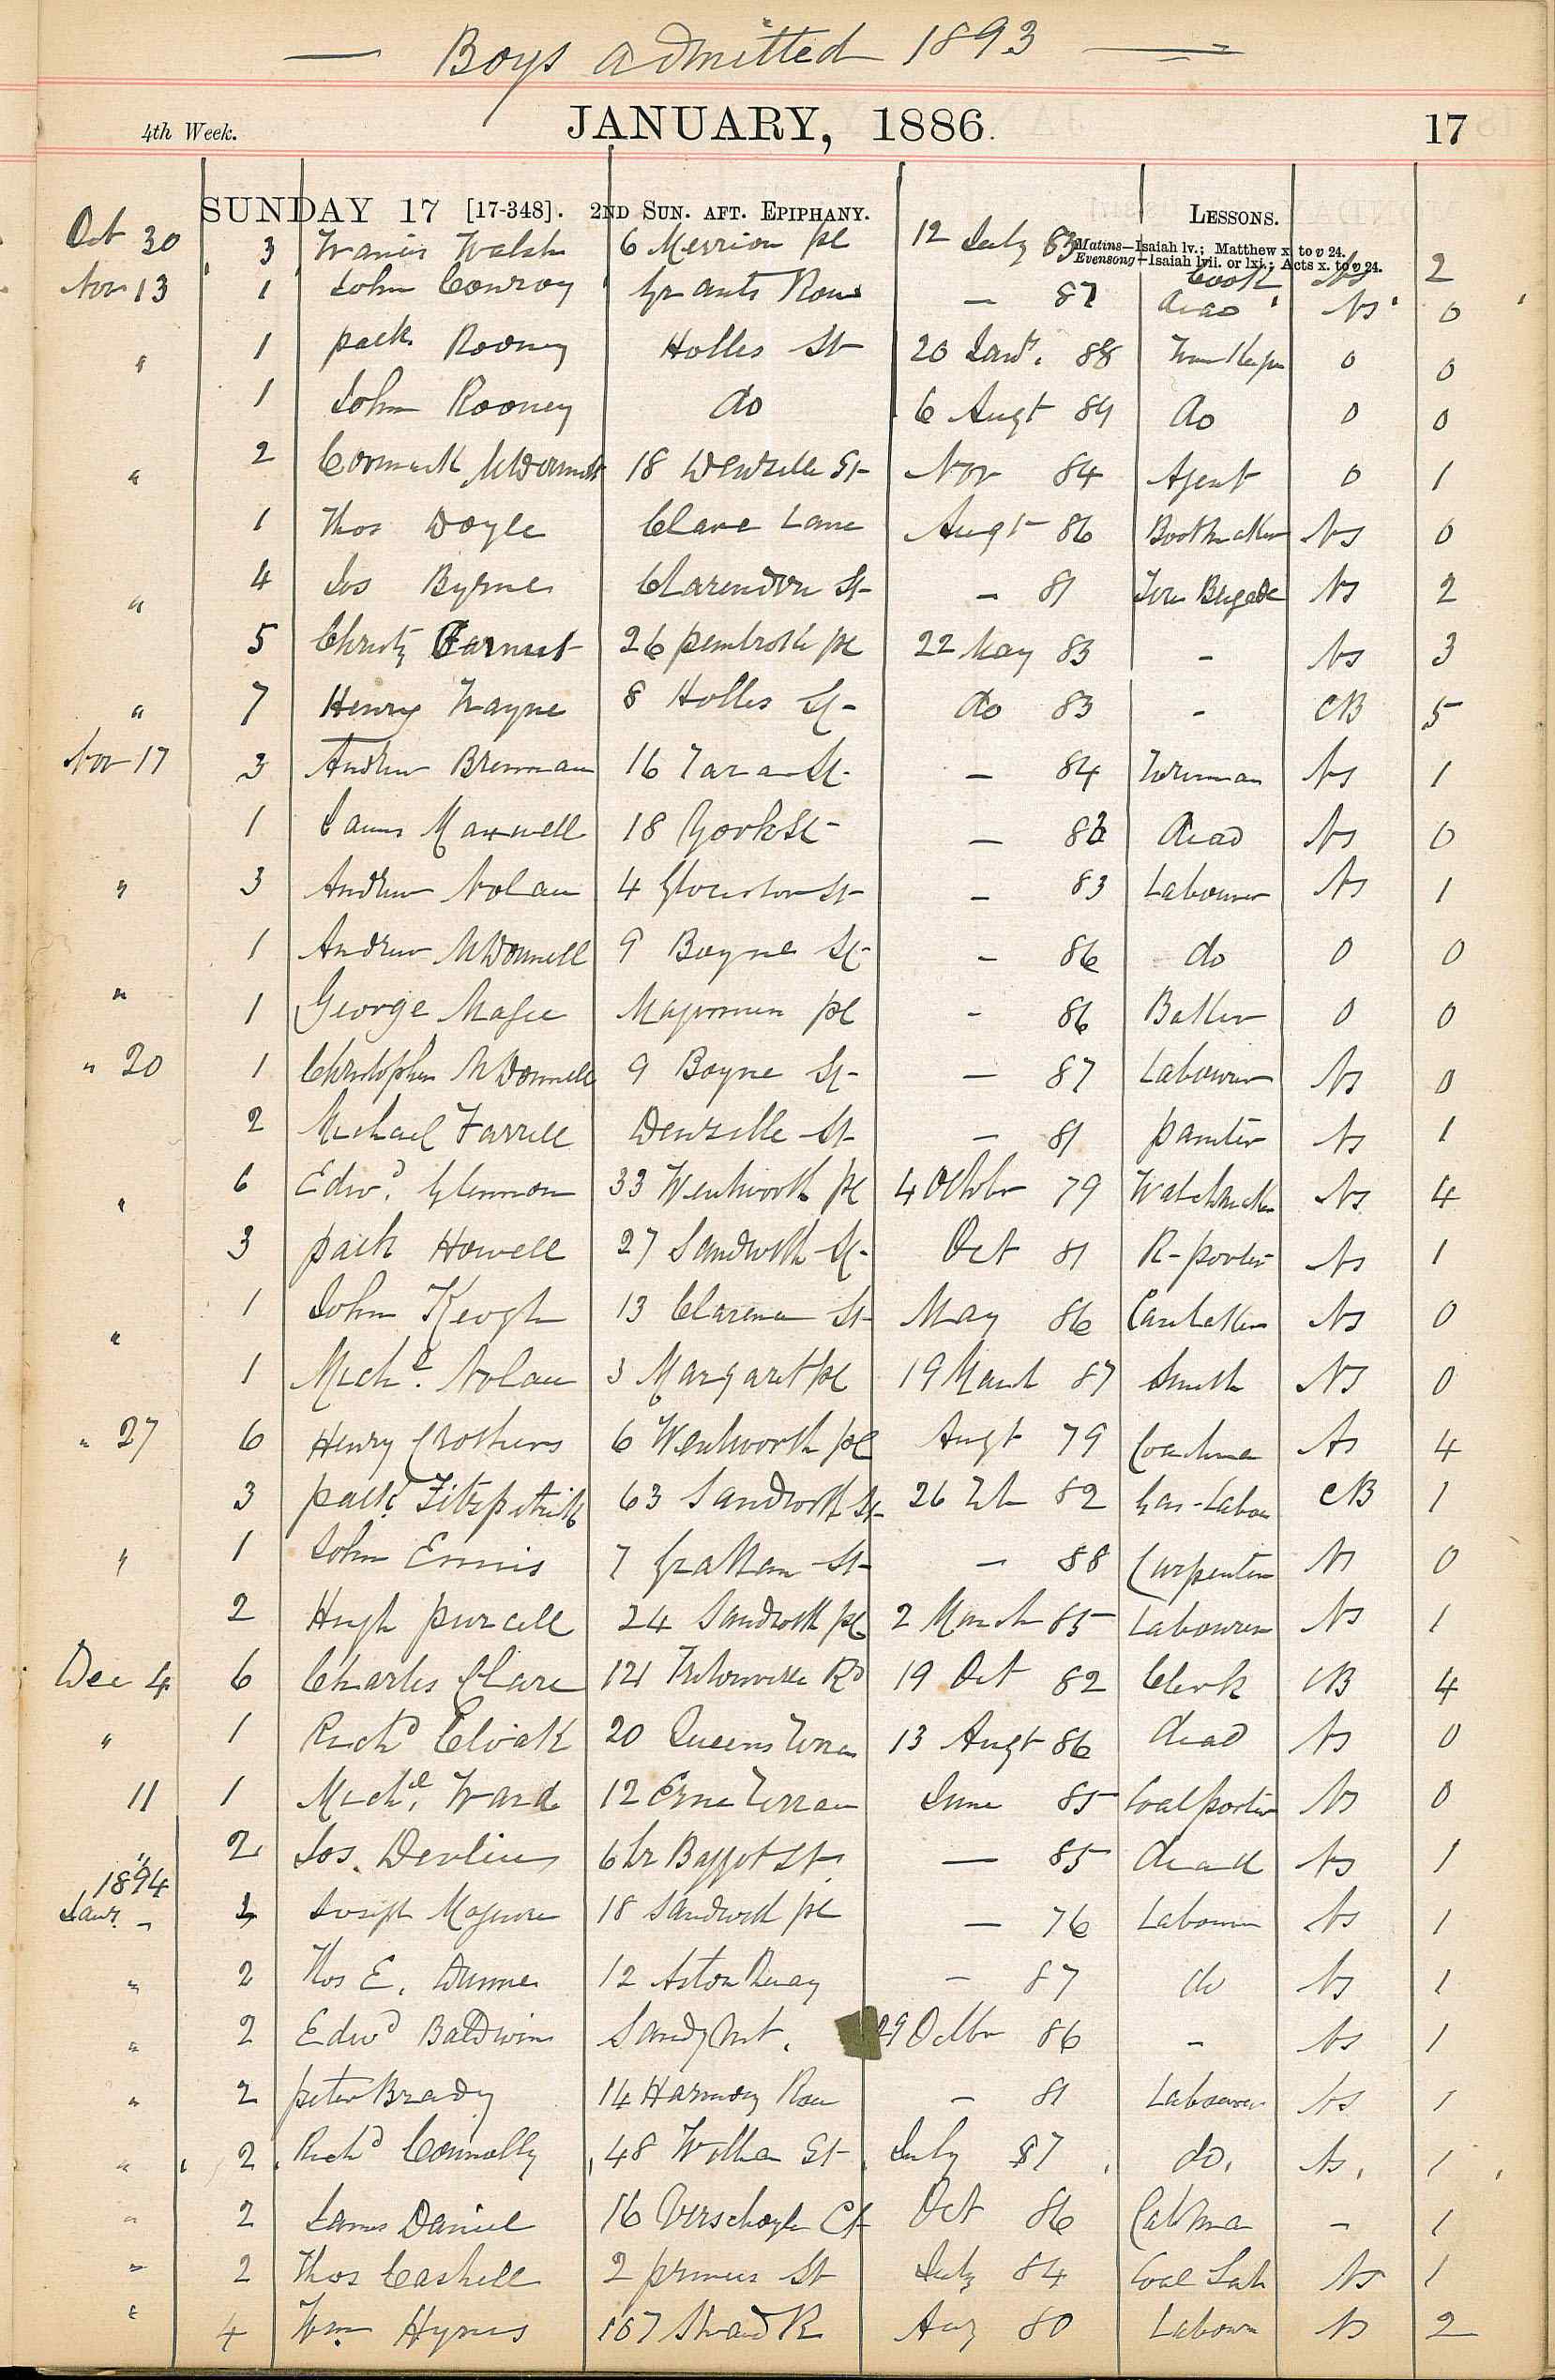 Boys admitted 1893
4th Week. JANUARY, 1886. 17
SUNDAY 17 [17-348]. 2ND SUN. AFT. EPIPHANY. LESSONS.
Matins—Isaiah lv.; Matthew x. to v 24.
Evensong—Isaiah lvii. or lxi.; Acts x. to v 24.
Oct 30 3 Francis Walsh 6 Merrion pl 12 July 83 Cook Ns 2
Nov 13 1 John Conroy Grants Row — 87 dead Ns 0
" 1 patk Rooney Holles St 20 Jany. 88 0 0
1 John Rooney do 6 Augt 84 do 0 0
" 2 Cormack McDermott 18 Denzille St Nov 84 Agent 0 1
1 Thos Doyle Clare Lane Augt 86 Bootmaker Ns 0
" 4 Jos Byrne Clarendon St – 81 Fire Brigade Ns 2
5 Christy 26 pembroke pl 22 May 83 – Ns 3
" 7 Henry Wayne 8 Holles St do 83 – CB 5
Nov 17 3 Andrew Brennan 16 Tara St — 84 Ns 1
1 James Maxwell 18 York St — dead Ns 0
" 3 Andrew Nolan 4 Gloucester St – 83 Labourer Ns 1
1 Andrew McDonnell 9 Boyne St – 86 do 0 0
" 1 George Magee Magennis pl - 86 Baker 0 0
" 20 1 Christopher McDonnell 9 Boyne St — 87 Labourer Ns 0
2 Michael Farrell Denzille St – 81 painter Ns 1
" 6 Edwd. Glennon 33 Wentworth pl 4 October 79 Watchmaker Ns 4
3 patk Howell 27 Sandwith St Oct 81 R-porter Ns 1
" 1 John Keogh 13 Clarence St May 86 Ns 0
1 Michl. Nolan 3 Margaret pl 19 March 87 Smith NS 0
" 27 6 Henry Crothers 6 Wentworth pl Augt 79 Coachman Ns 4
3 patk. Fitzpatrick 63 Sandwith St 26 Feb 82 Gas-Labou CB 1
" 1 John Ennis 7 Grattan St — 88 Carpenter Ns 0
2 Hugh purcell 24 Sandwith pl 2 March 85 Labourer Ns 1
Dec 4 6 Charles Clare 121 Tritonville Rd 19 Oct 82 Clerk CB 4
" 1 Richd Cloak 20 Queens Terrace 13 Augt 86 dead Ns 0
11 1 Michl. Ward 12 Erne Terrace June 85 Coalporter Ns 0
" 2 Jos. Devlin 6 Lr Baggot St. — 85 dead Ns 1
1894
Jany. – Joseph Maguire 18 Sandwith pl — 76 Labourer Ns 1
" 2 Thos E. Dunne 12 Aston Quay – 87 do Ns 1
" 2 Edwd Baldwin Sandymt. 29 Octbr 86 – Ns 1
" 2 peter Brady 14 Harmony Row – 81 Labourer Ns 1
" 2 Richd Connolly 48 William St July 87 do. Ns. 1
" 2 James Daniel 16 Verschoyle Ct Oct 86 Cabman – 1
" 2 Thos Cashell 2 princes St July 84 Coal Lab Ns 1
" 4 Wm. Hynes 167 Strand R Aug 80 Labour Ns 2